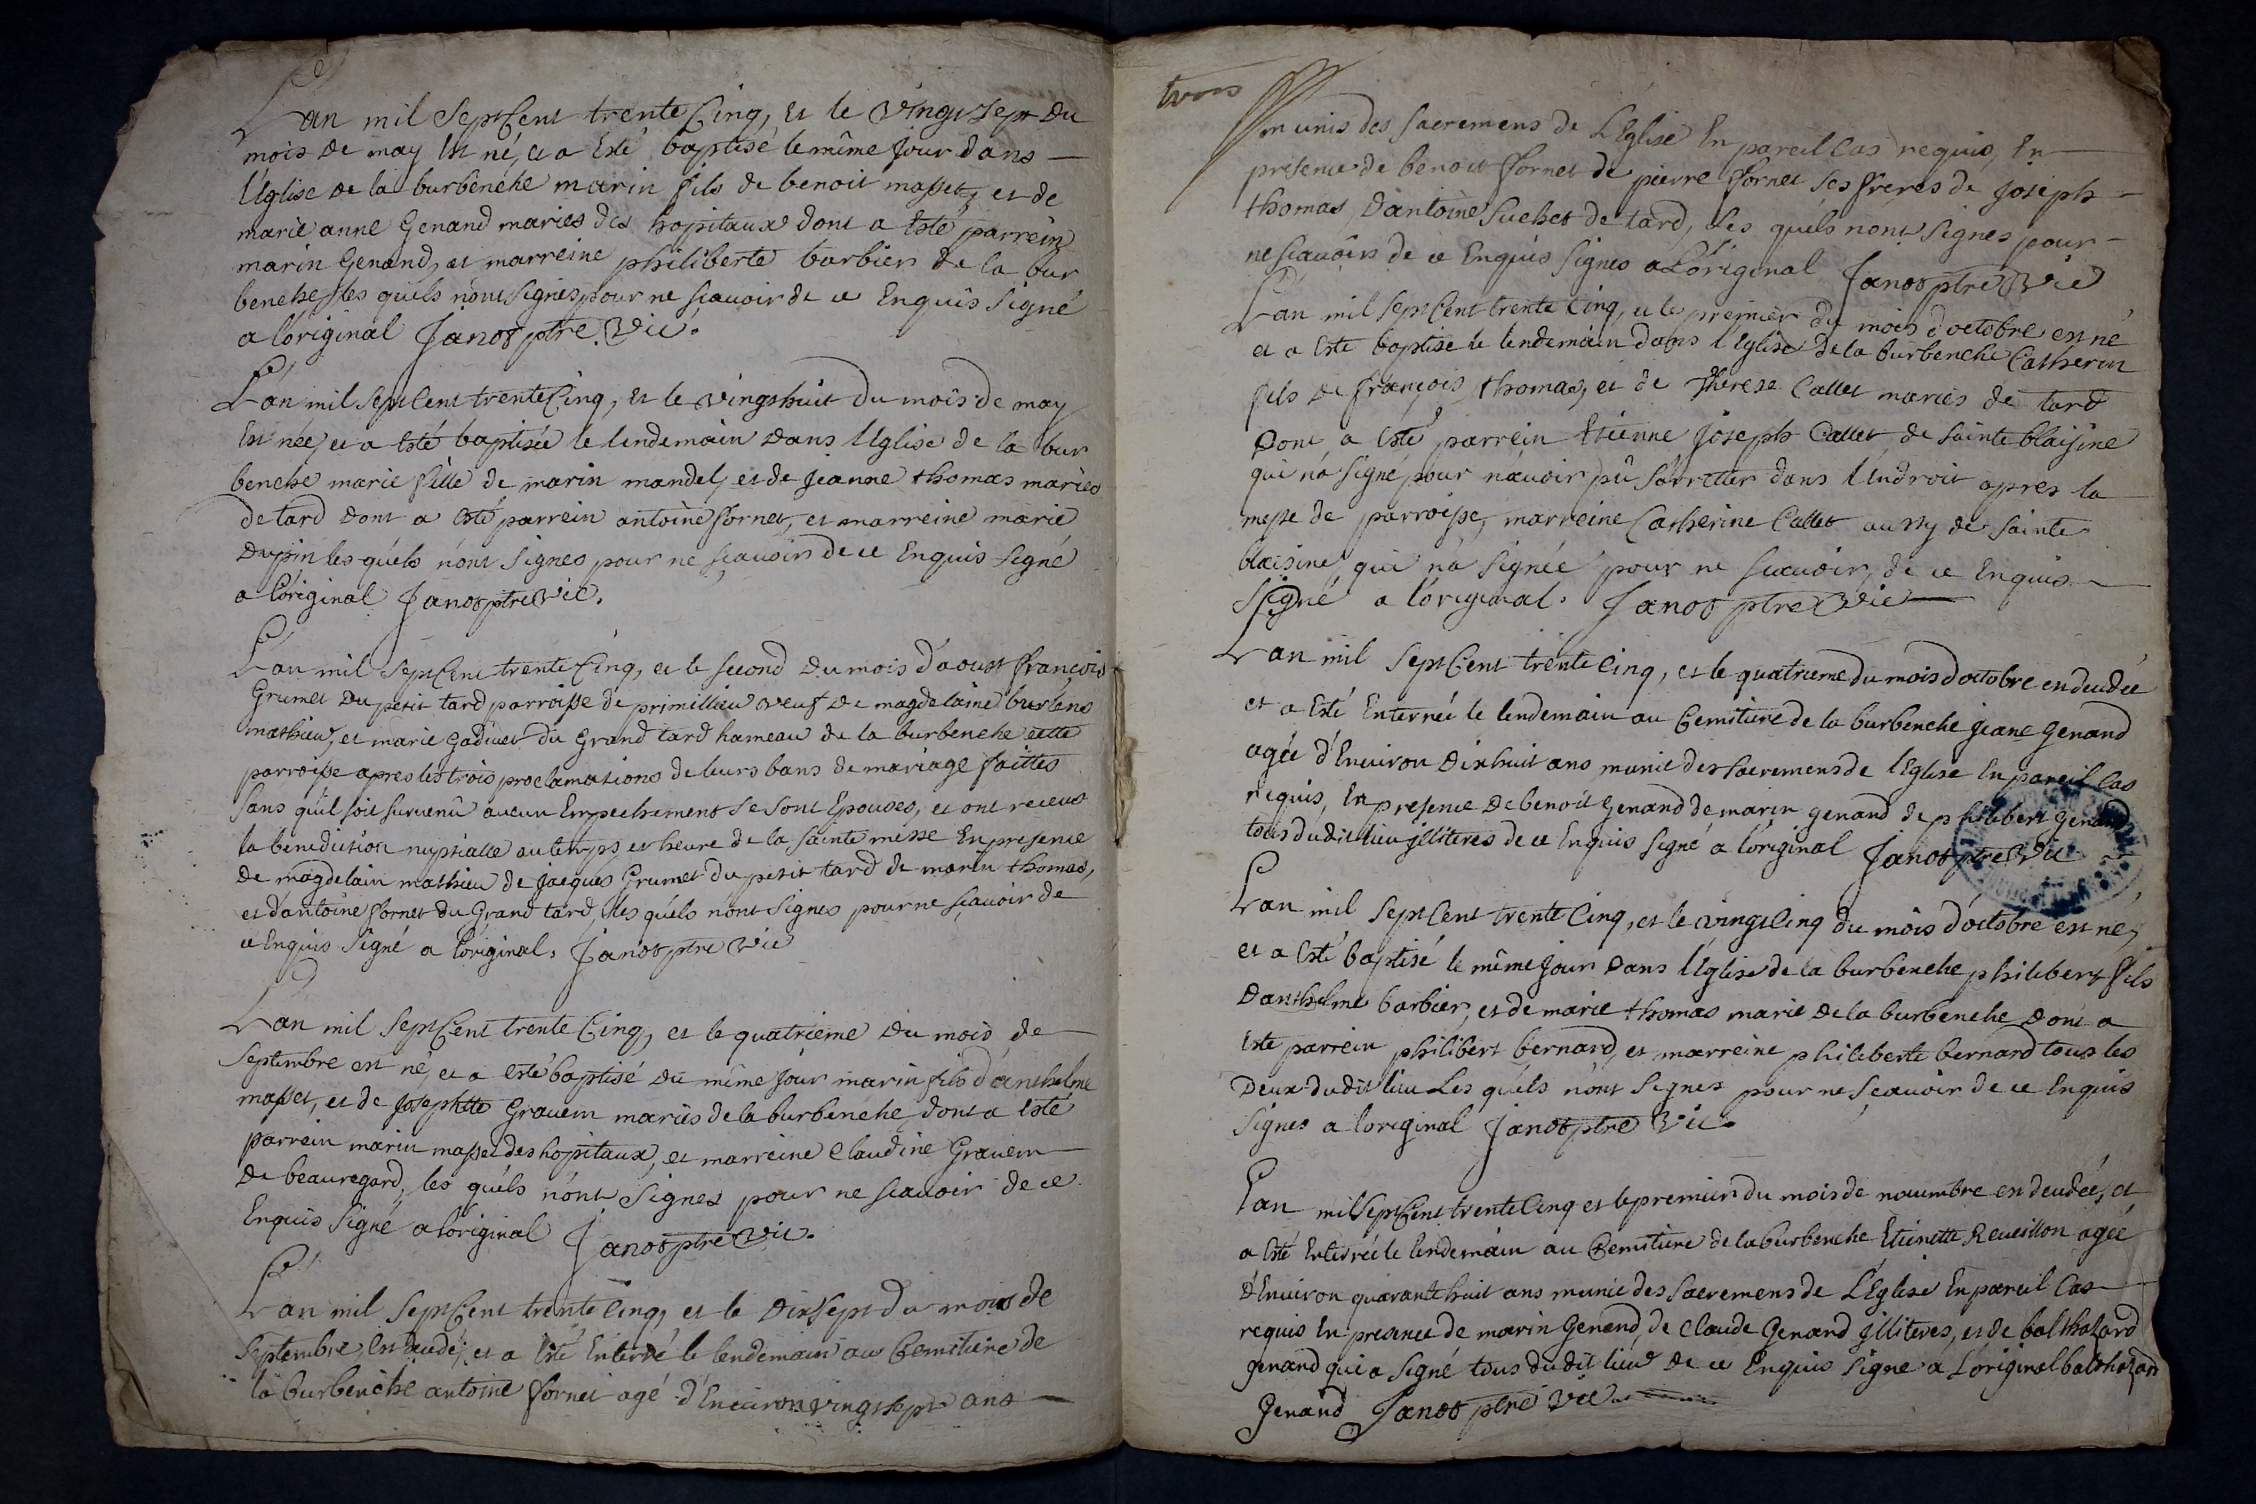 Lan mil SeptCent trente Cinq, et le vingt sept du
mois de may Est né, et a Esté baptisé le même jour dans
l'Eglise de la burbenche marin fils de benoit masset, et de
marie anne Genand maries des hopitaux dont a Esté parrein
marin Genand, et marreine philiberte barbier de la bur
benche, les quels n'ont Signes pour ne scavoir de ce Enquis Signé
a l'original Janot ptre Vic.
Lan mil Sept Cent trente Cinq, et le vingt huit du mois de may
Est née, et a Esté baptisée le lendemain dans l'Eglise de la bur
benche marie fille de marin mandel, et de jeanne thomas maries
de tard dont a Esté parrein antoine fornet, et marreine marie
Dupin les quels n'ont Signes pour ne scavoir de ce Enquis Signé
a l'original Janot ptre Vic.
Lan mil SeptCent trente Cinq, et le second du mois d'aoust françois
Grumet du petit tard parroisse de primillieu veuf de magdelaine
mathieu, et marie Gadivet du Grand tard hameau de la burbenche cette
parroisse apres les trois proclamations de leurs bans de mariage faittes
sans qu'il soit survenu aucun Empechement se sont Epouses, et ont receus
la benediction nuptialle au temps et heure de la sainte messe En presence
de magdelain mathieu de jacques Grumet du petit tard de marin thomas,
et d'antoine fornet du Grand tard, les quels n'ont Signes pour ne scavoir de
ce Enquis Signé a l'original. Janot ptre Vic
Lan mil SeptCent trente Cinq, et le quatrieme du mois de
Septembre est né, et a esté baptisé du même jour marin fils d'anthelme
masset, et de josephtte Gravem mariés de la burbenche dont a Esté
parrein marin masset des hopitaux, et marreine Claudine Gravem
de beauregard, les quels n'ont Signes pour ne scavoir de ce
Enquis Signé a l'original Janot ptre Vic.
Lan mil SeptCent trente Cinq, et le Dix Sept du mois de
Septembre, est decedé, et a Esté Enterré le lendemain au Cemitiere de
la burbenche antoine fornet agé d'Environ vingt sept ans
trois
munis des Sacremens de L'Eglise En pareil Cas requis, En
presence de benoit fornet de pierre fornet ses freres de joseph
thomas, d'antoine Suchet de tard, les quels n'ont Signes pour
ne scavoir de ce Enquis Signes a L'original Janot ptre Vic
Lan mil SeptCent trente Cinq, et le premier du mois d'octobre est né
et a Esté baptisé le lendemain dans l'Eglise de la burbenche Catherin
fils de françois thomas, et de therese Callet mariés de tard
Dont a Esté parrein Etienne joseph Callet de Sainte blaisine
qui n'a Signé pour n'avoir pû s'arretter dans l'Endroit apres la
messe de parroisse, marreine Catherine Callet aussy de Sainte
blaisine qui n'a Signée pour ne scavoir, de ce Enquis
Signé a l'original. Janot ptre Vic
Lan mil SeptCent trente cinq, et le quatrieme du mois d'octobre est decedée
et a Esté Enterrée le lendemain au Cemitiere de la burbenche jeane Genand
agée d'Environ Dixhuit ans munie des sacremens de l'Eglise En pareil Cas
requis, En presence de benoit Genand de marin genand de philibert genand
tous dudit lieu jlliteres de ce Enquis Signé a l'original Janot ptre Vic
Lan mil SeptCent trente Cinq, et le vingt Cinq du mois d'octobre est né,
et a Esté baptisé le même jour Dans l'Eglise de la burbenche philibert fils
Danthelme barbier, et de marie thomas marié de la burbenche Dont a
Esté parrein philibert bernard, et marreine philiberte bernard tous les
Deux dudit lieu Les quels n'ont Signes pour ne scavoir de ce Enquis
Signes a l'original Janot ptre Vic.
Lan mil SeptCent trente Cinq et le premier du mois de novembre est decedée, et
a Esté Enterrée le lendemain au Cemitiere de la burbenche Etienette Reveillon agée
d'Environ quarante huit ans munie des Sacremens de L'Eglise En pareil Cas
requis En presence de marin Genand, de Claude Genand jlliteres, et de balthazard
genand qui a Signé tous dudit lieu de ce Enquis Signe a L'original balthazard
Genand Janot ptre Vic